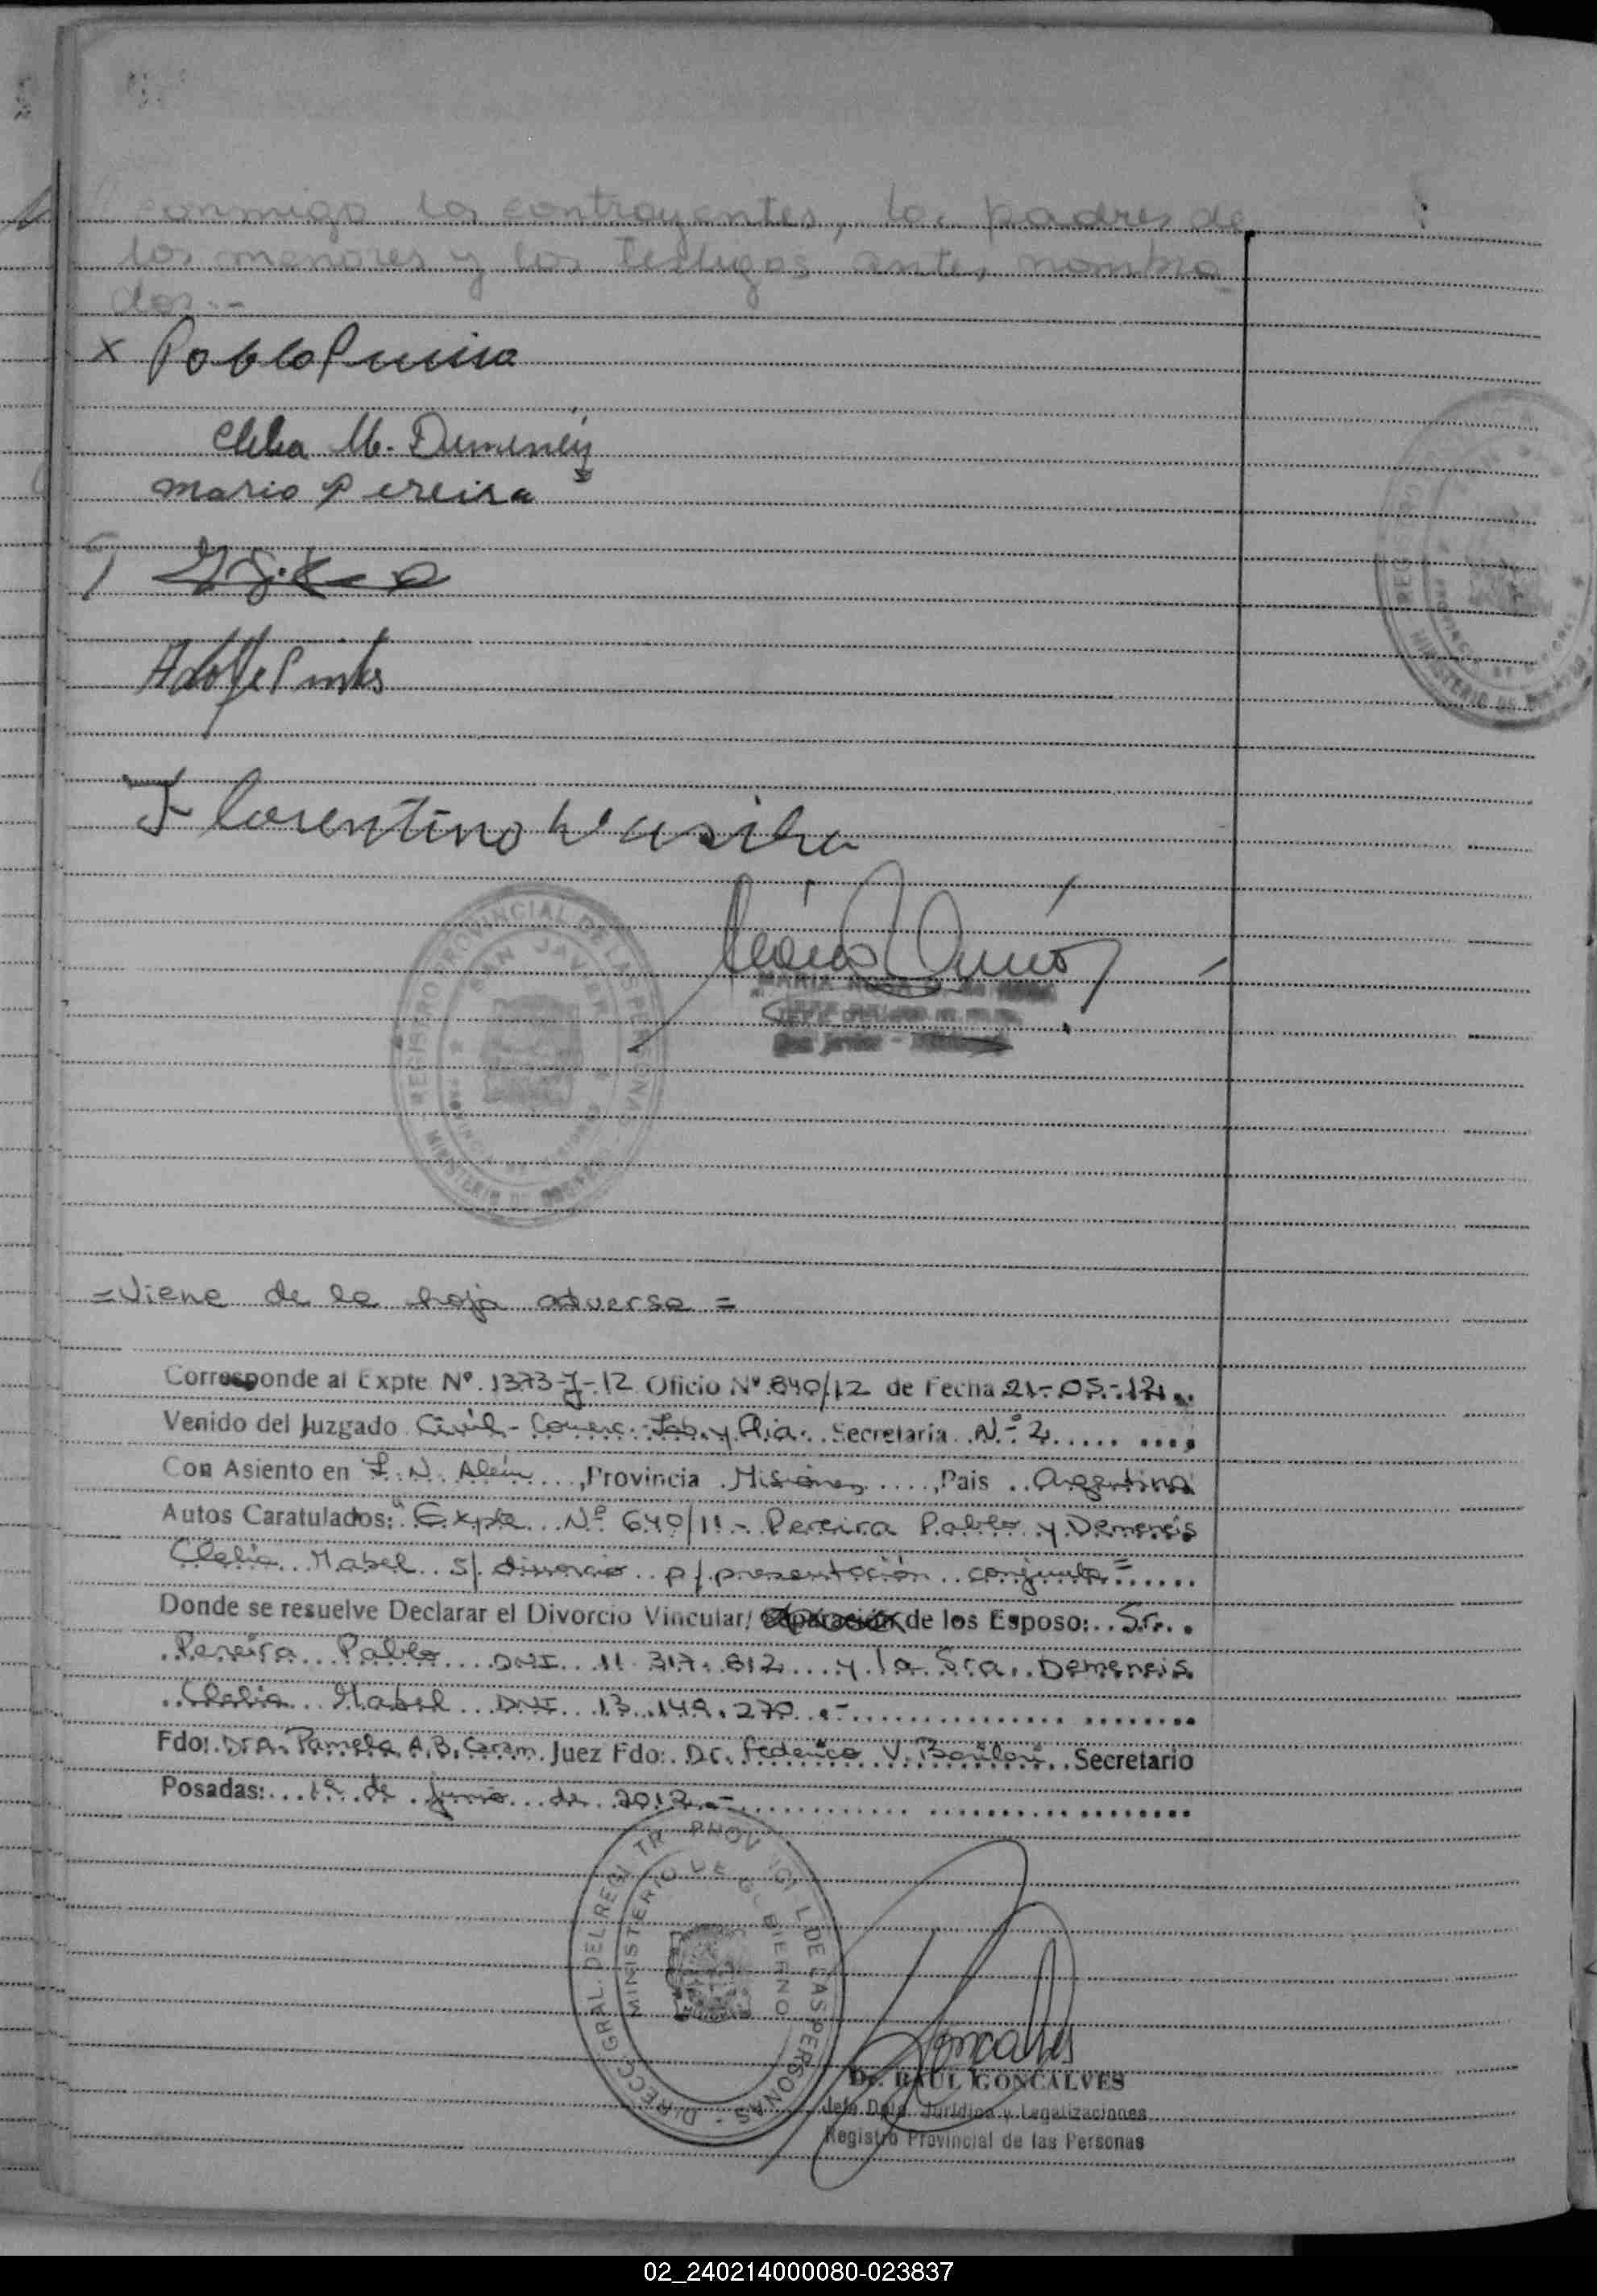 conmigo los contrayentes, los padres de
los menores y los testigos antes nombra
dos.-
x Pablo Pereira
Clelia M. Demeneis
Mario Pereira
Adolfo Pinto
Florentino
REGISTRO PROVINCIAL DE LAS PERSONAS
SAN JAVIER
PROVINCIA DE MISIONES
MINISTERIO DE GOBIERNO
MARIA ROSA
JEFE
San Javier - Misiones
= Viene de la hoja adversa =
Corresponde al Expte Nº. 1373-J-.12 Oficio Nº 840/12 de Fecha 21-.05.-.12..
Venido del Juzgado Civil - Comerc. - Lab. y Flia. Secretaria Nº 2
Con Asiento en L. N. Alem, Provincia Misiones, País Argentina
Autos Caratulados: "Expte Nº 640/11 - Pereira Pablo y Demeneis
Clelia Mabel s/ divorcio p/ presentación conjunta"
Donde se resuelve Declarar el Divorcio Vincular/ Separación de los Esposo: Sr.
Pereira Pablo DNI 11.317.812 y la Sra. Demeneis
Clelia Mabel DNI 13.149.270.-
Fdo: Dra. Pamela A.B. Caram. Juez Fdo: Dr. Federico V. Secretario
Posadas: 1º de junio de 2012.-
DIRECC. GRAL. DEL REGISTR PROVINCIAL DE LAS PERSONAS
MINISTERIO DE GOBIERNO
Goncalves
Dr. RAUL GONCALVES
Jefe Dpto. Jurídico y Legalizaciones
Registro Provincial de las Personas
02_240214000080-023837